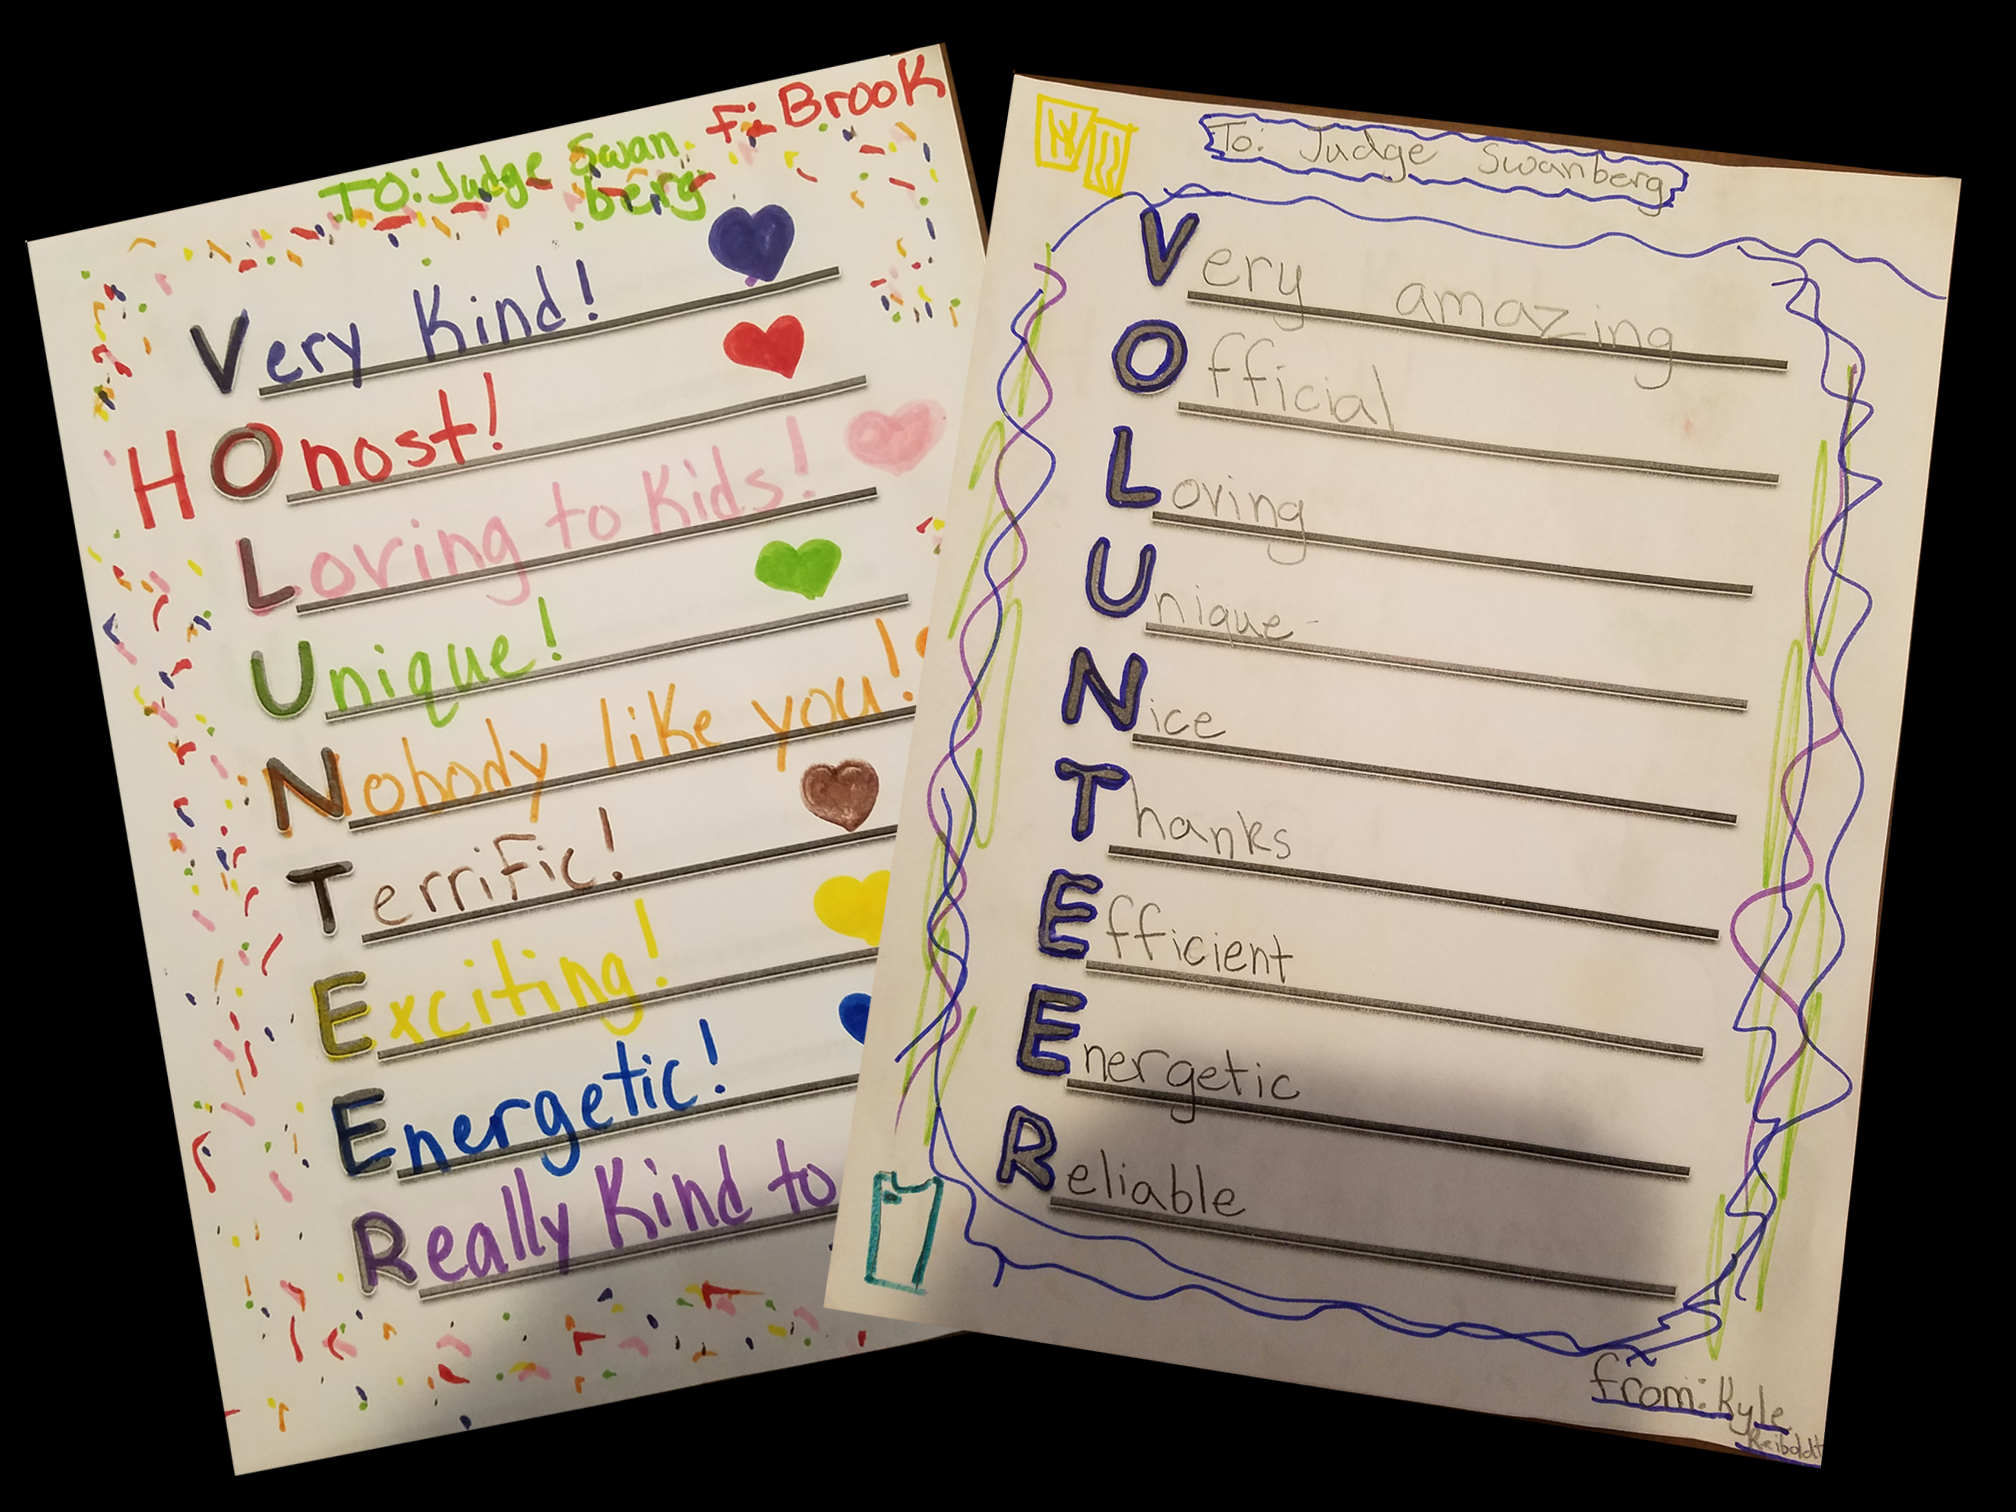 F: Brook
TO: Judge Swan
berg
Very Kind!
HOnost!
Loving to Kids!
Unique!
Nobody like you!
Terrific!
Exciting!
Energetic!
Really Kind to
To: Judge Swanberg
Very amazing
Official
Loving
Unique
Nice
Thanks
Efficient
Energetic
Reliable
from: Kyle
Reiboldt